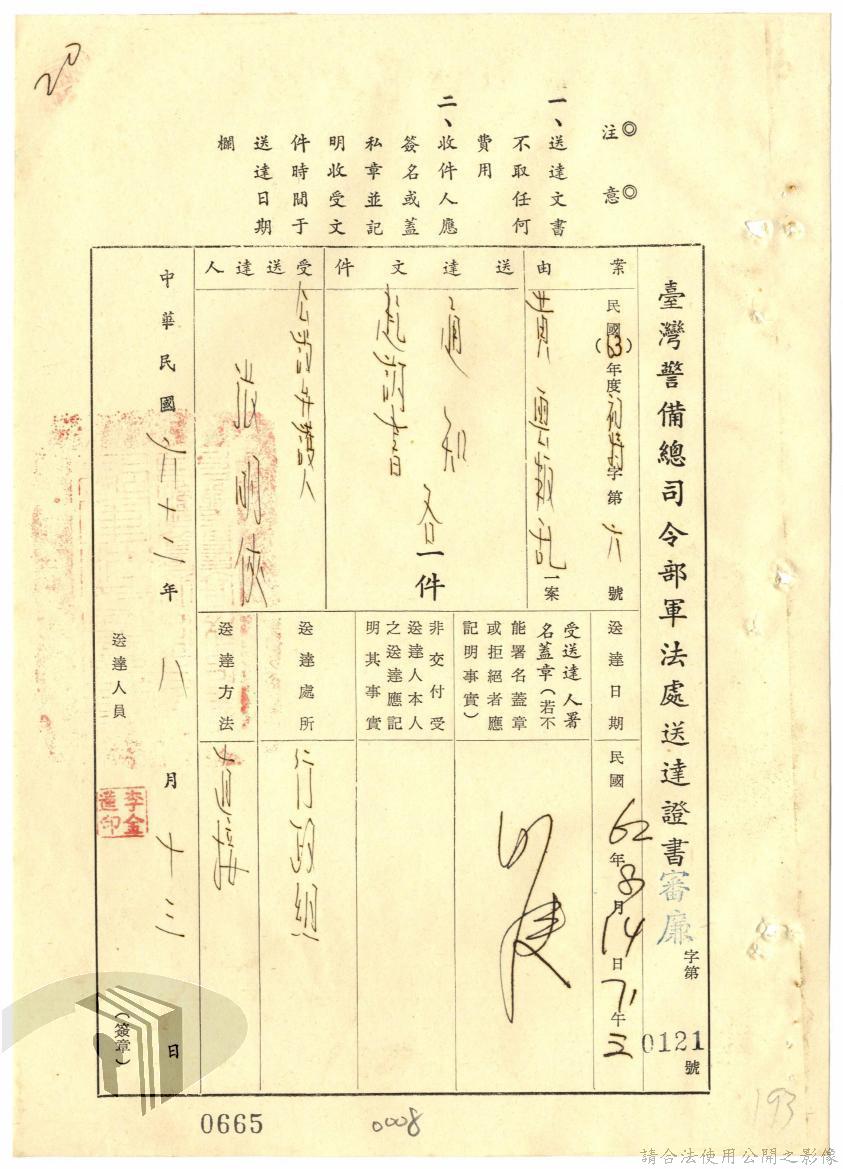 20
◎注意◎
一、送達文書
不取任何
費用
二、收件人應
簽名或蓋
私章並記
明收受文
件時間于
送達日期
欄
臺灣警備總司令部軍法處送達證書審廉字第0121號
案由
民國(63)年度初特字第六號
黃 叛亂一案
送達文件
通知
起訴書
各一件
受送達人
公設辯護人
張明俠
送達日期
民國62年8月14日 午
受送達人署
名蓋章(若不
能署名蓋章
或拒絕者應
記明事實)
非交付受
送達人本人
之送達應記
明其事實
送達處所
行政組
送達方法
直接
中華民國六十二年八月十三日
送達人員
李金
道印
(簽章)
0665
0008
193
請合法使用公開之影像